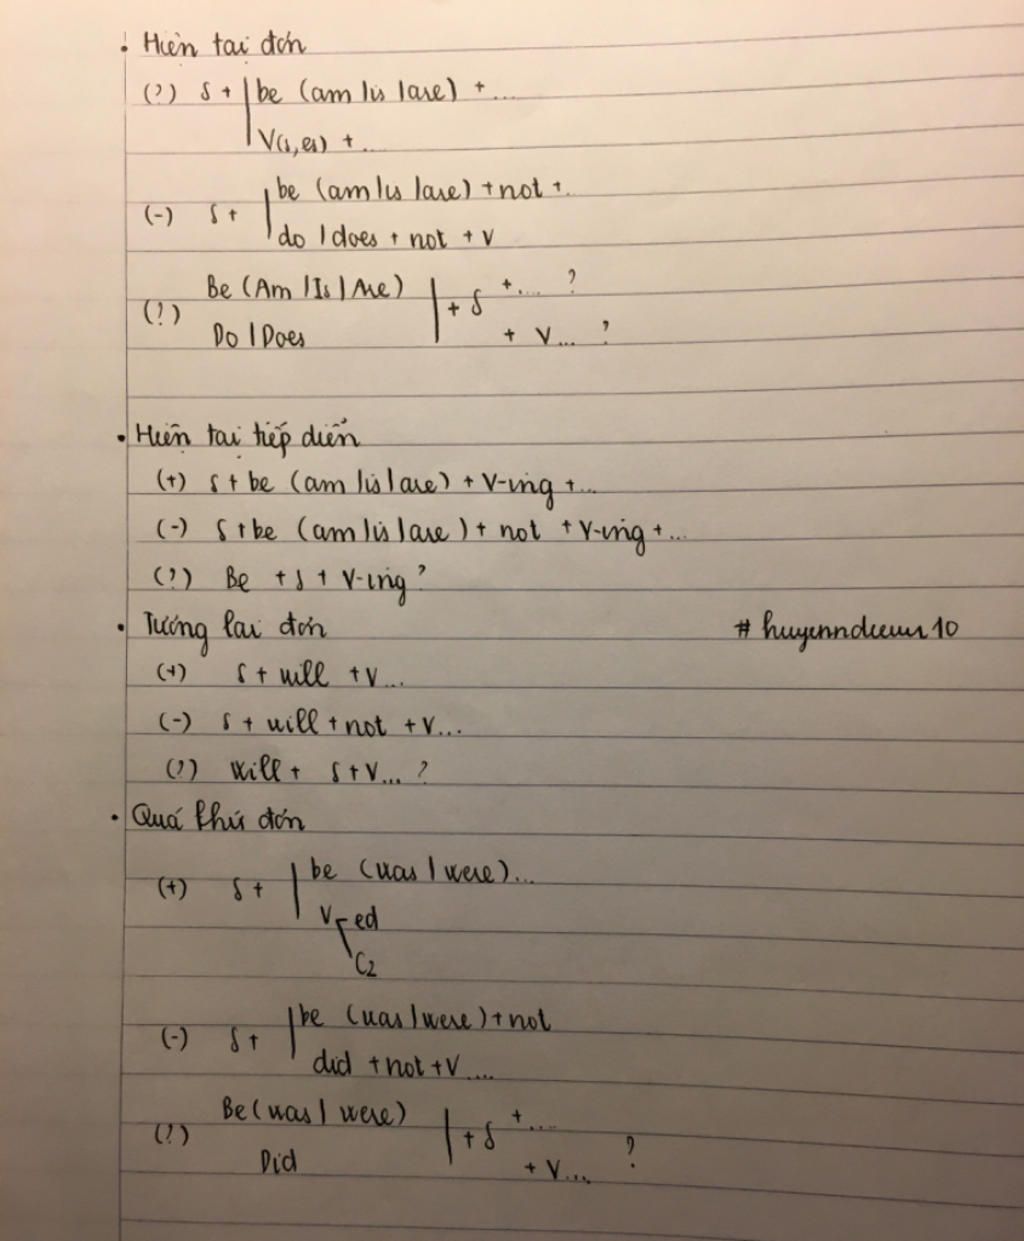 • Hiện tại đơn
(?) S + be (am / is / are) + ...
V(s,es) + ...
(-) S + be (am / is / are) + not + ..
do / does + not + V
(?) Be (Am / Is / Are) + S + .... ?
Do / Does + V... ?
• Hiện tại tiếp diễn
(+) S + be (am / is / are) + V-ing + ...
(-) S + be (am / is / are) + not + V-ing + ...
(?) Be + S + V-ing ?
• Tương lai đơn # huyenndieuu10
(+) S + will + V...
(-) S + will + not + V...
(?) Will + S + V... ?
• Quá khứ đơn
(+) S + be (was / were)...
V ed
C2
(-) S + be (was / were) + not
did + not + V ....
(?) Be (was / were) + S + ....
Did + V.... ?